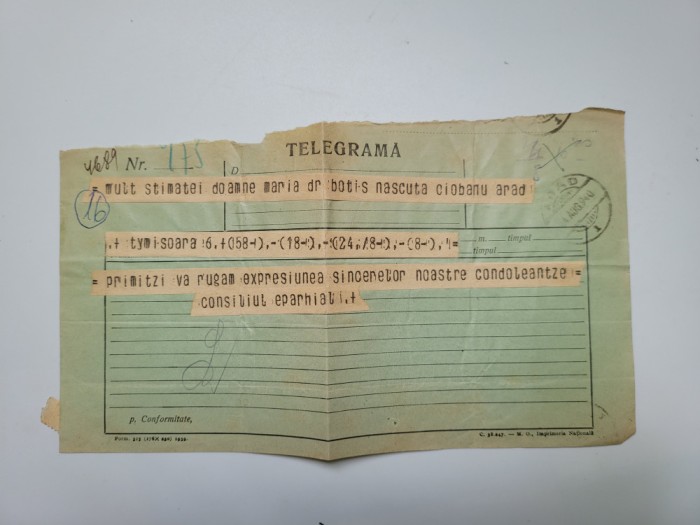 4689 Nr. 175
TELEGRAMA
= mult stimatei doamne maria dr botis nascuta ciobanu arad
16
ARAD
.+ tymisoara
m. timpul
timpul
= primitzi va rugam expresiunea sincerelor noastre condoleantze =
consiliul eparhial .+
p. Conformitate,
M. O., Imprimeria Națională